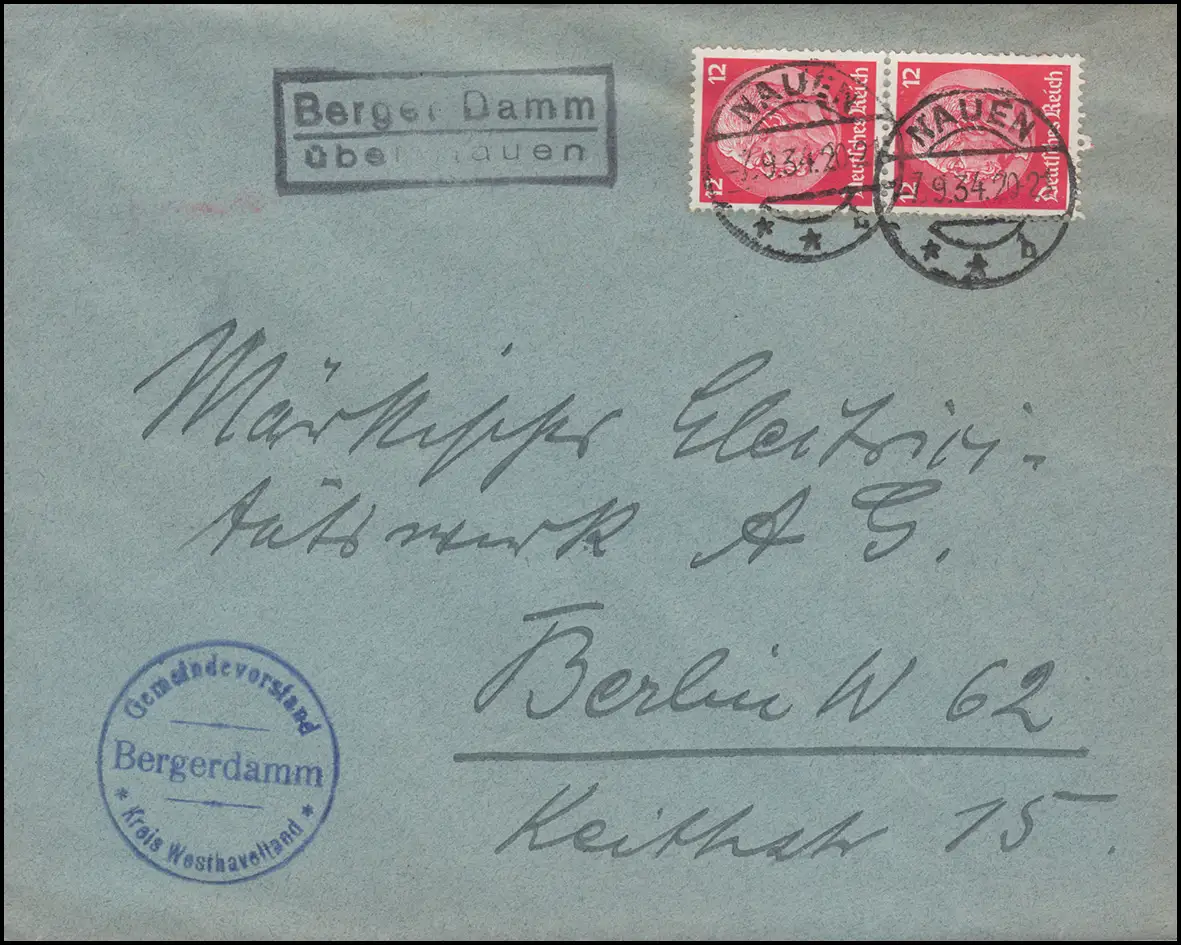 Berger Damm
über Nauen
12
12
Deutsches Reich
12
12
Deutsches Reich
NAUEN
-7.9.34.20
NAUEN
-7.9.34.20-21
* * b
Märkisches Elektrici-
tätswerk A G.
Berlin W 62
Keithstr 15.
Gemeindevorstand
Bergerdamm
* Kreis Westhavelland *